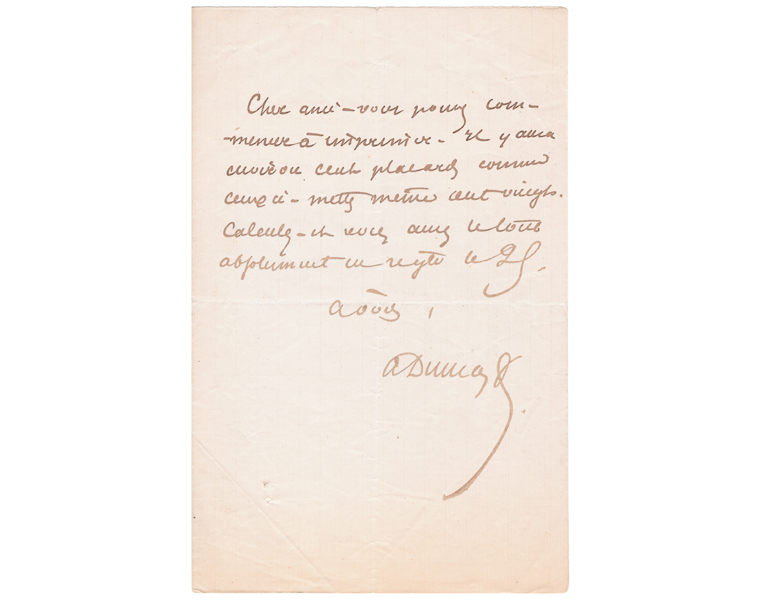 Cher ami – vous pouvez com-
mencer à imprimer – Il y aura
environ cent placards comme
ceux ci – mettez même cent vingt.
Calculez – et vous aurez le tout
absolument en règle le 25.
A vous,
A Dumas